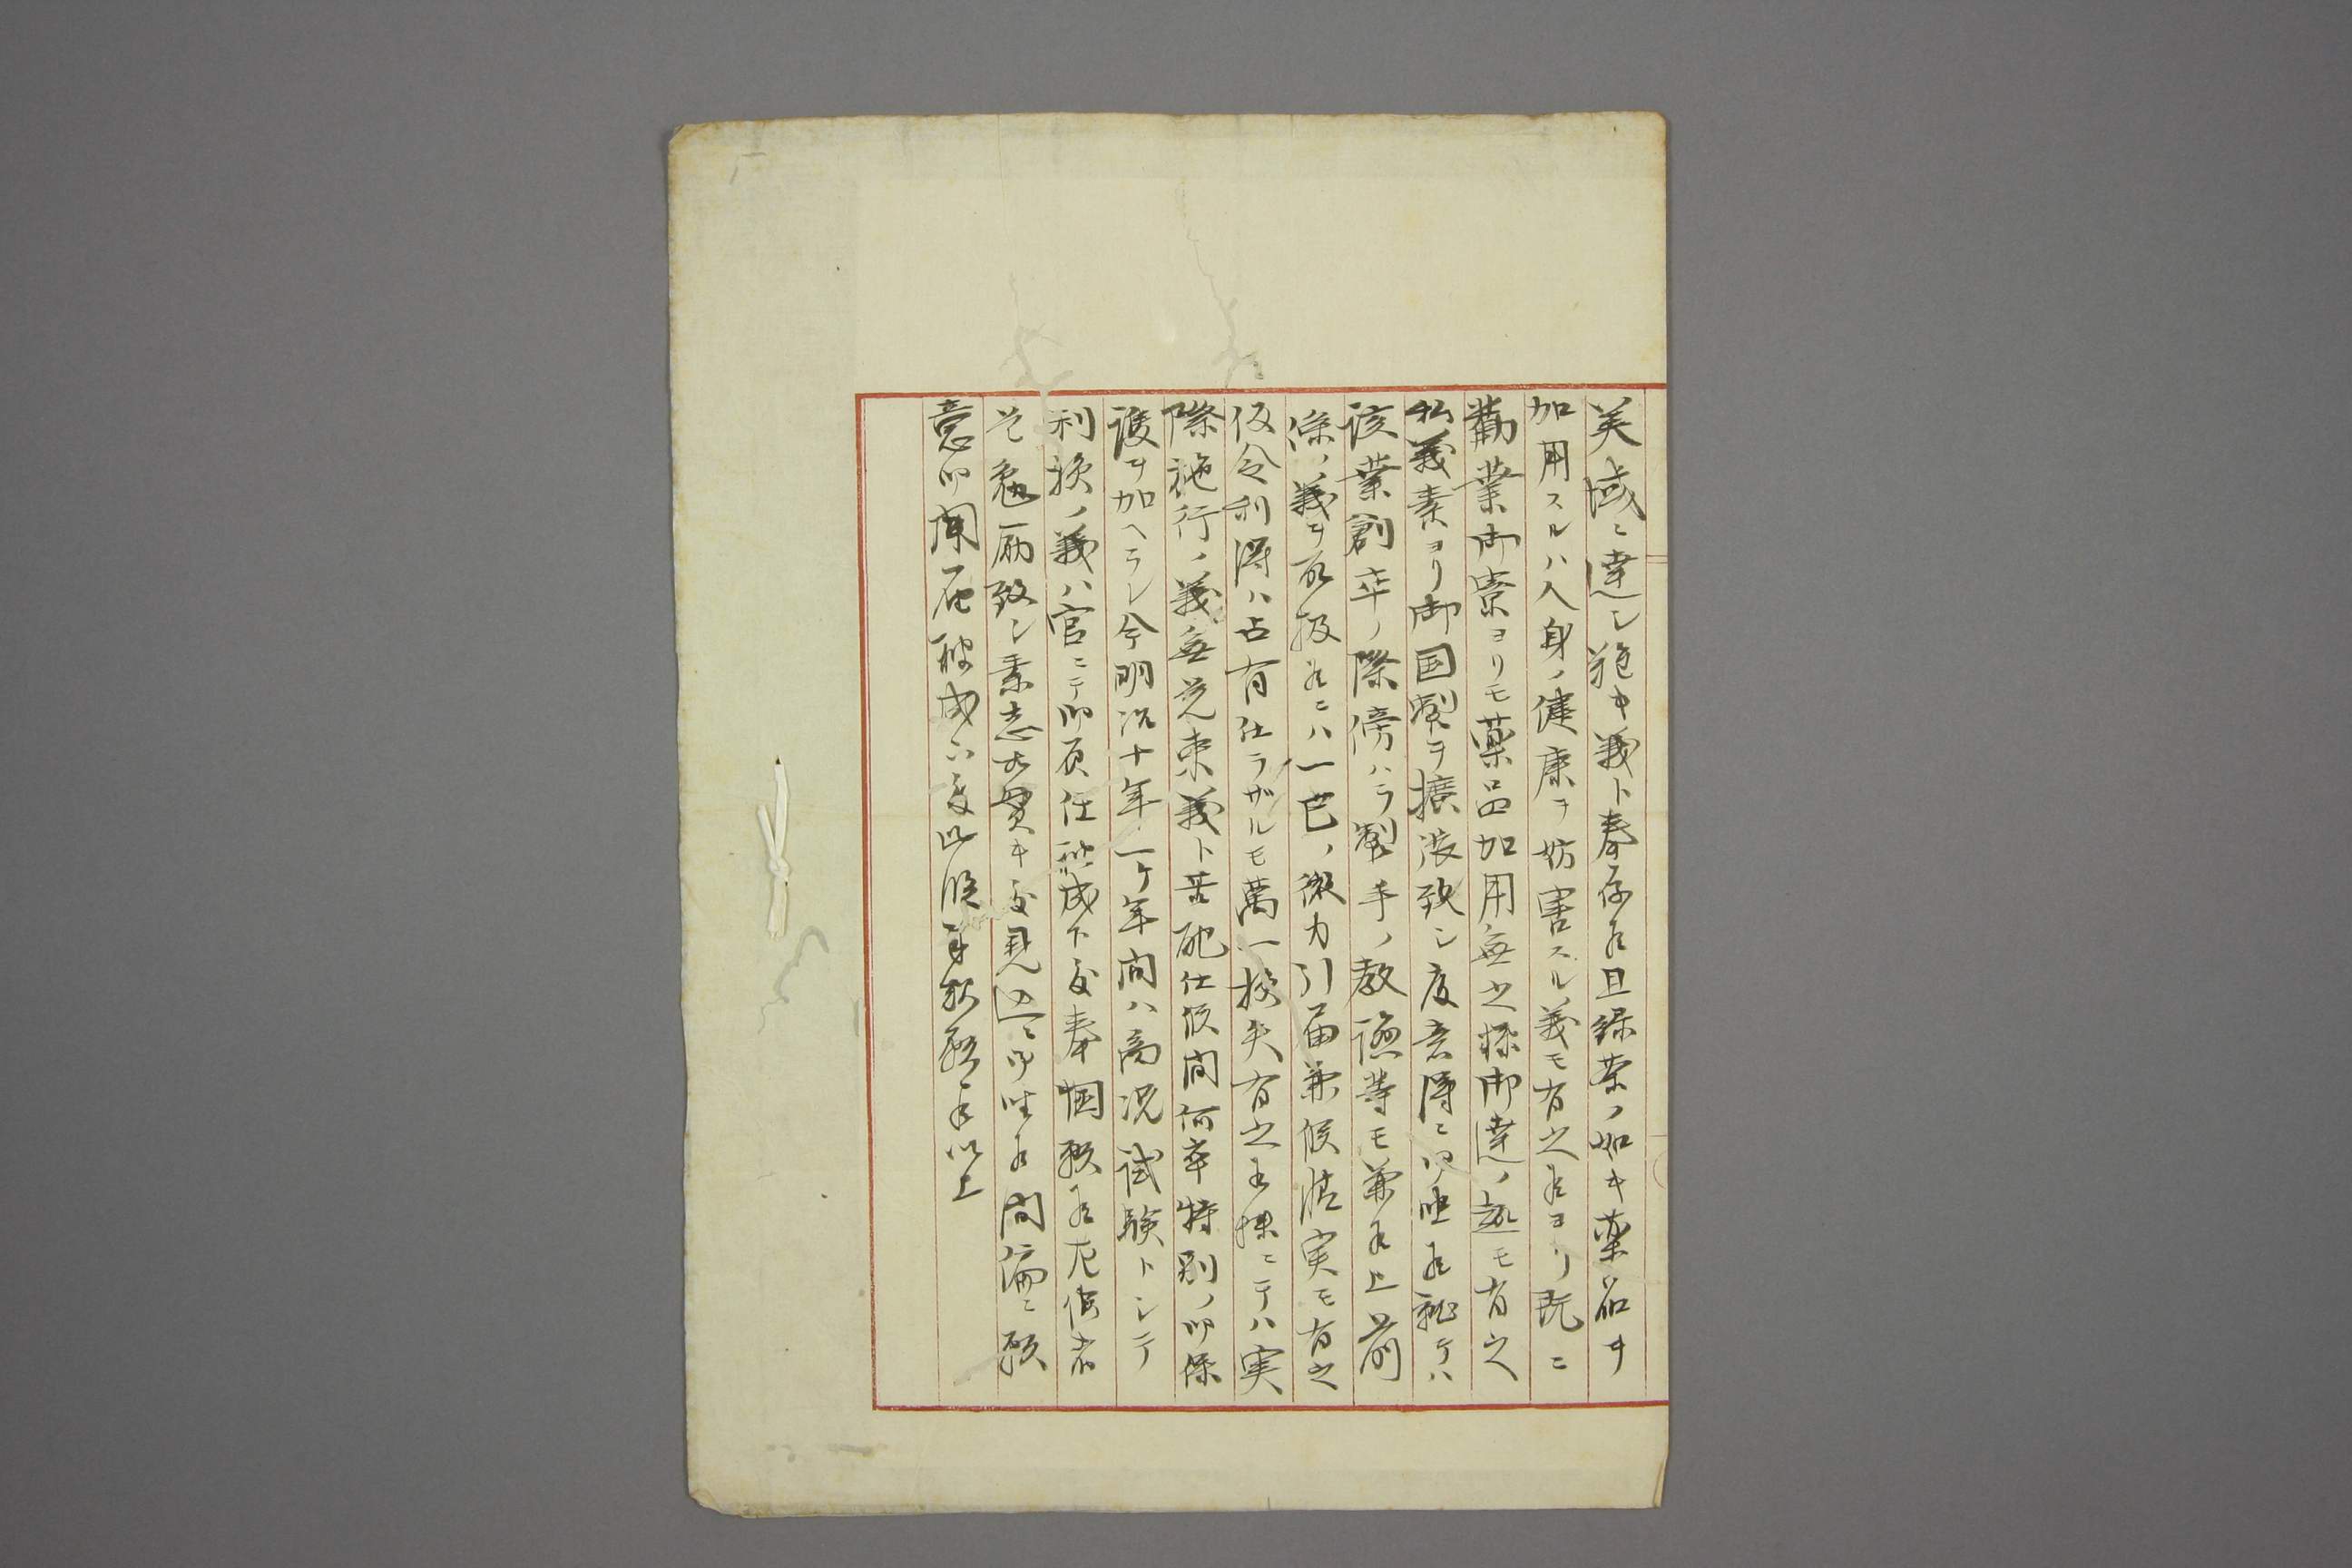 美域ニ達シ難キ義ト奉存候且緑茶ノ如キ薬品ヲ
加用スルハ人身ノ健康ヲ妨害スル義モ有之候ヨリ既ニ
勧業御寮ヨリモ薬品加用無之様御達ノ趣モ有之
私義素ヨリ御国製ヲ擴張致シ度意得ニ御坐候就テハ
該業創卒ノ際傍ハラ製手ノ教諭等モ兼候上前
條ノ義ヲ取扱候ニハ一己ノ微力引届兼候情実モ有之
仮令利得ハ占有仕ラザルモ萬一損失有之候様ニテハ実
際施行ノ義無覚束義ト苦配仕候間何卒特別ノ御保
護ヲ加ヘラレ今明治十年一ケ年間ハ商況試験トシテ
利損ノ義ハ官ニテ御負任被成下度奉懇願候左候者
尚勉励致シ素志ヲ貫キ度見込ニ御坐候間偏ニ願
意御聞届被成下度此段奉歎願候以上